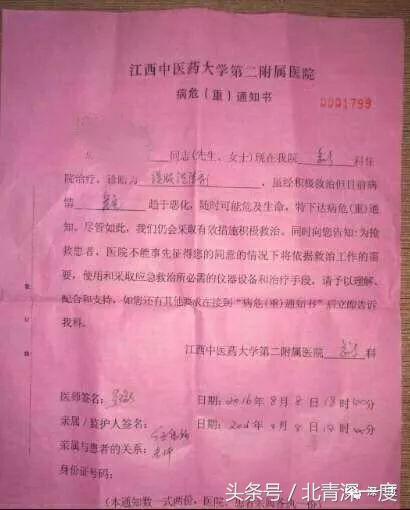 江西中医药大学第二附属医院
病危(重)通知书
0001799
同志(先生、女士)现在我院 科住
院治疗，诊断为 ，虽经积极救治但目前病
情 趋于恶化，随时可能危及生命，特下达病危(重)通
知。尽管如此，我们仍会采取有效措施积极救治。同时向您告知：为抢
救患者，医院不能事先征得您的同意的情况下将依据救治工作的需
要，使用和采取应急救治所必需的仪器设备和治疗手段，请予以理解、
配合和支持，如您还有其他要求在接到“病危(重)通知书”后立即告诉
我科。
江西中医药大学第二附属医院 科
医师签名： 日期：2016年8月8日18时00分
亲属/监护人签名： 日期：2016年8月8日18时00分
亲属与患者的关系：
身份证号码：
(本通知数一式两份，医院、患者亲属各执一份)
头条号／北青深一度